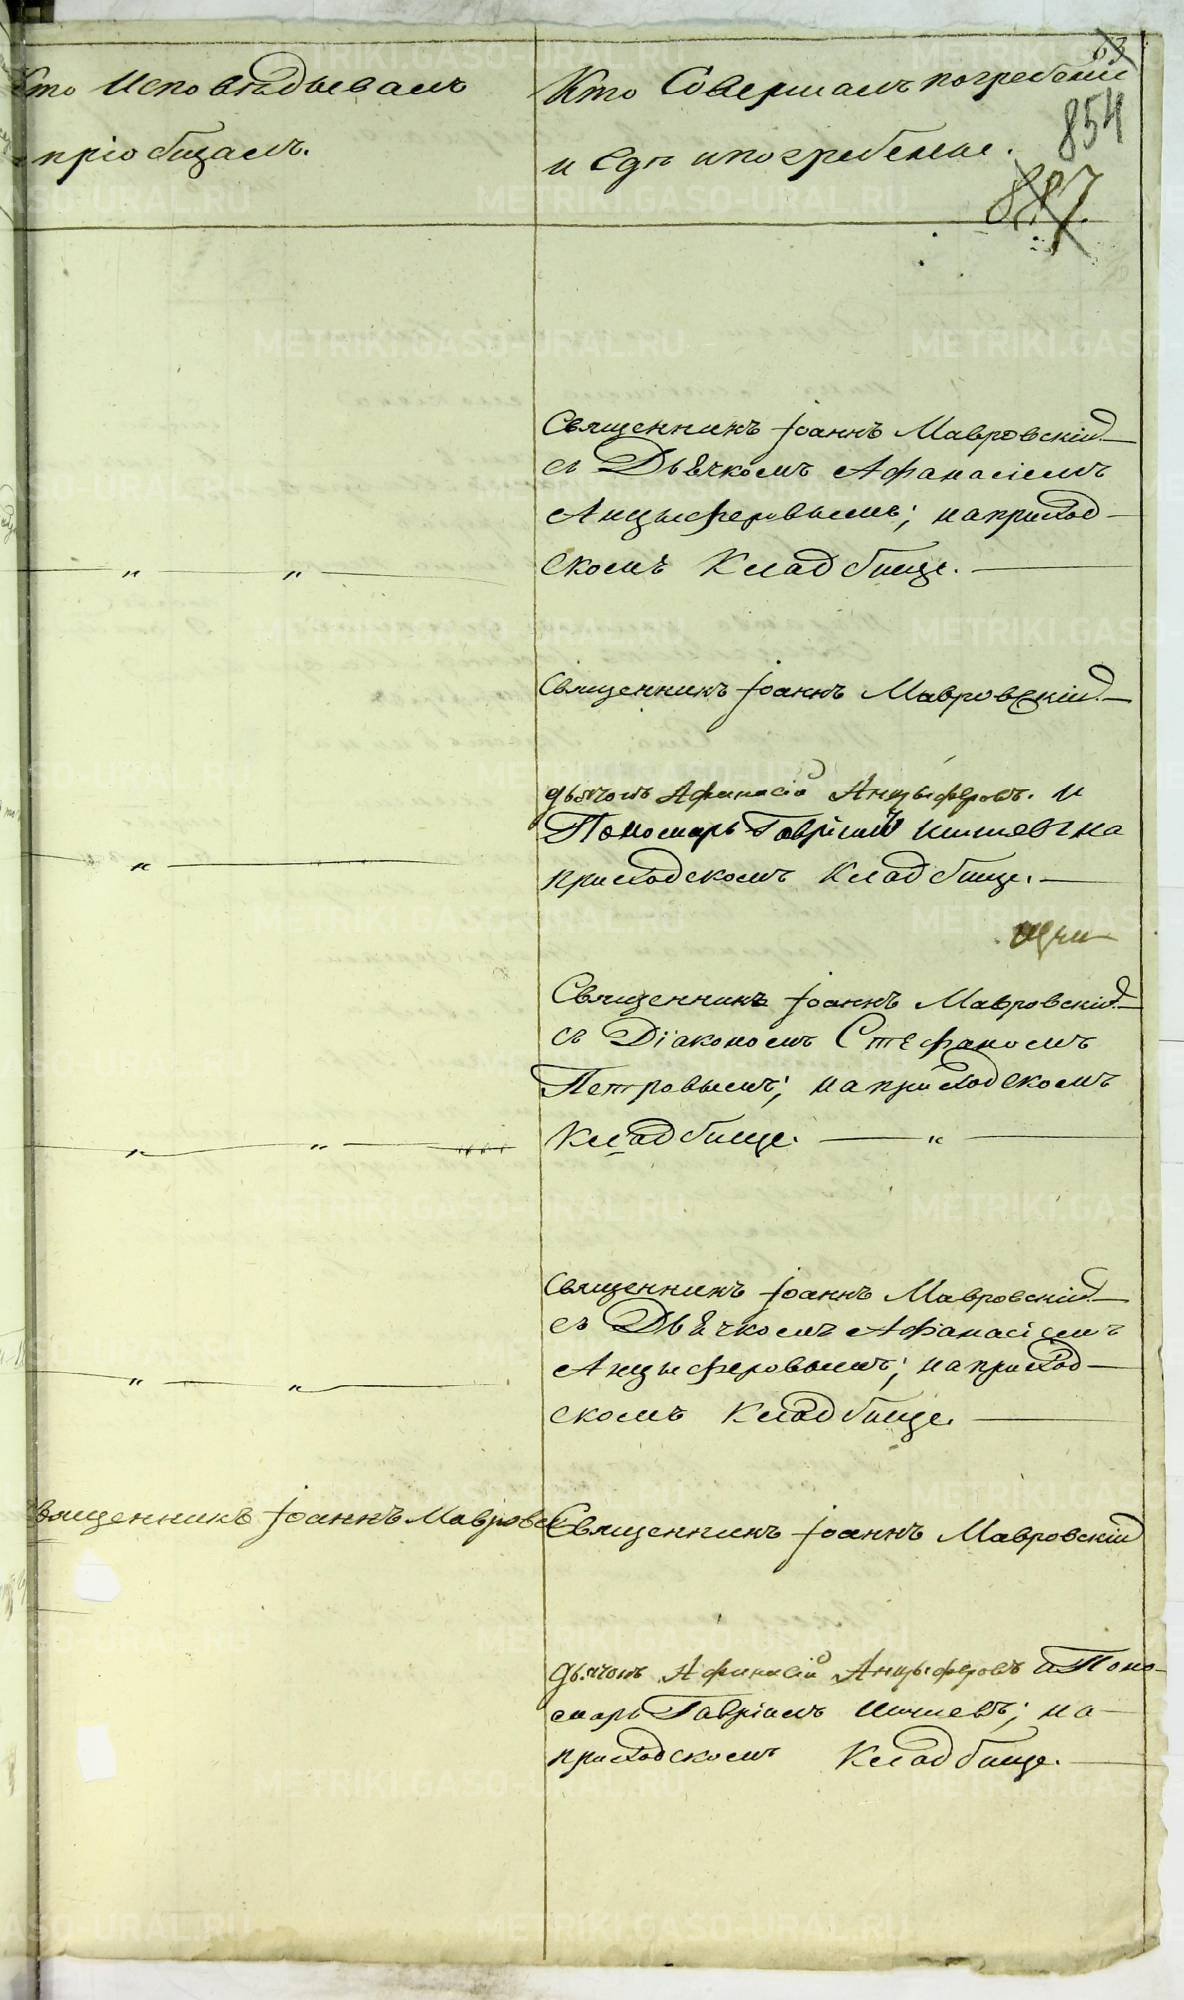 Кто Исповѣдывалъ
и пріобщалъ.
Кто Совершалъ погребеніе
и Гдѣ и погребены.
63
854
887
Священникъ Іоаннъ Мавровскій
съ Дьячкомъ Афанасіемъ
Анцыферовымъ; на приход-
скомъ Кладбище.
" "
Священникъ Іоаннъ Мавровскій
дьячокъ Афанасій Анцыферовъ. и
Пономарь Гавріилъ на
приходскомъ Кладбище.
"
Священникъ Іоаннъ Мавровскій
съ Діакономъ Стефаномъ
Петровымъ; на приходскомъ
Кладбище. "
" "
Священникъ Іоаннъ Мавровскій
съ Дьячкомъ Афанасіемъ
Анцыферовымъ; на приход-
скомъ Кладбище.
" "
Священникъ Іоаннъ Мавровск
Священникъ Іоаннъ Мавровскій
дьячокъ Афанасій Анцыферовъ и Поно-
марь Гавріилъ на
приходскомъ Кладбище.
METRIKI.GASO-URAL.RU